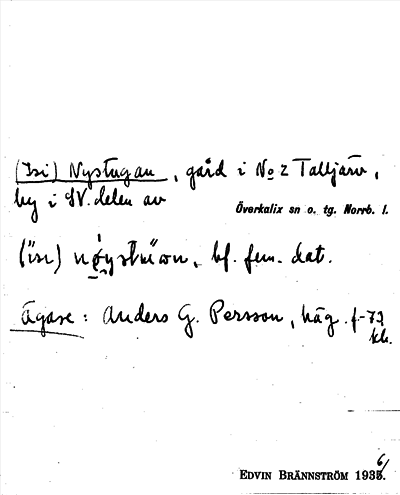 (Isi) Nystugan, gård i No 2 Talljärv,
by i SV. delen av
Överkalix sn o. tg. Norrb. l.
(isi) , bf. fem. dat.
Ägare: Anders G. Persson, häg. f-72
kk.
EDVIN BRÄNNSTRÖM 1936.